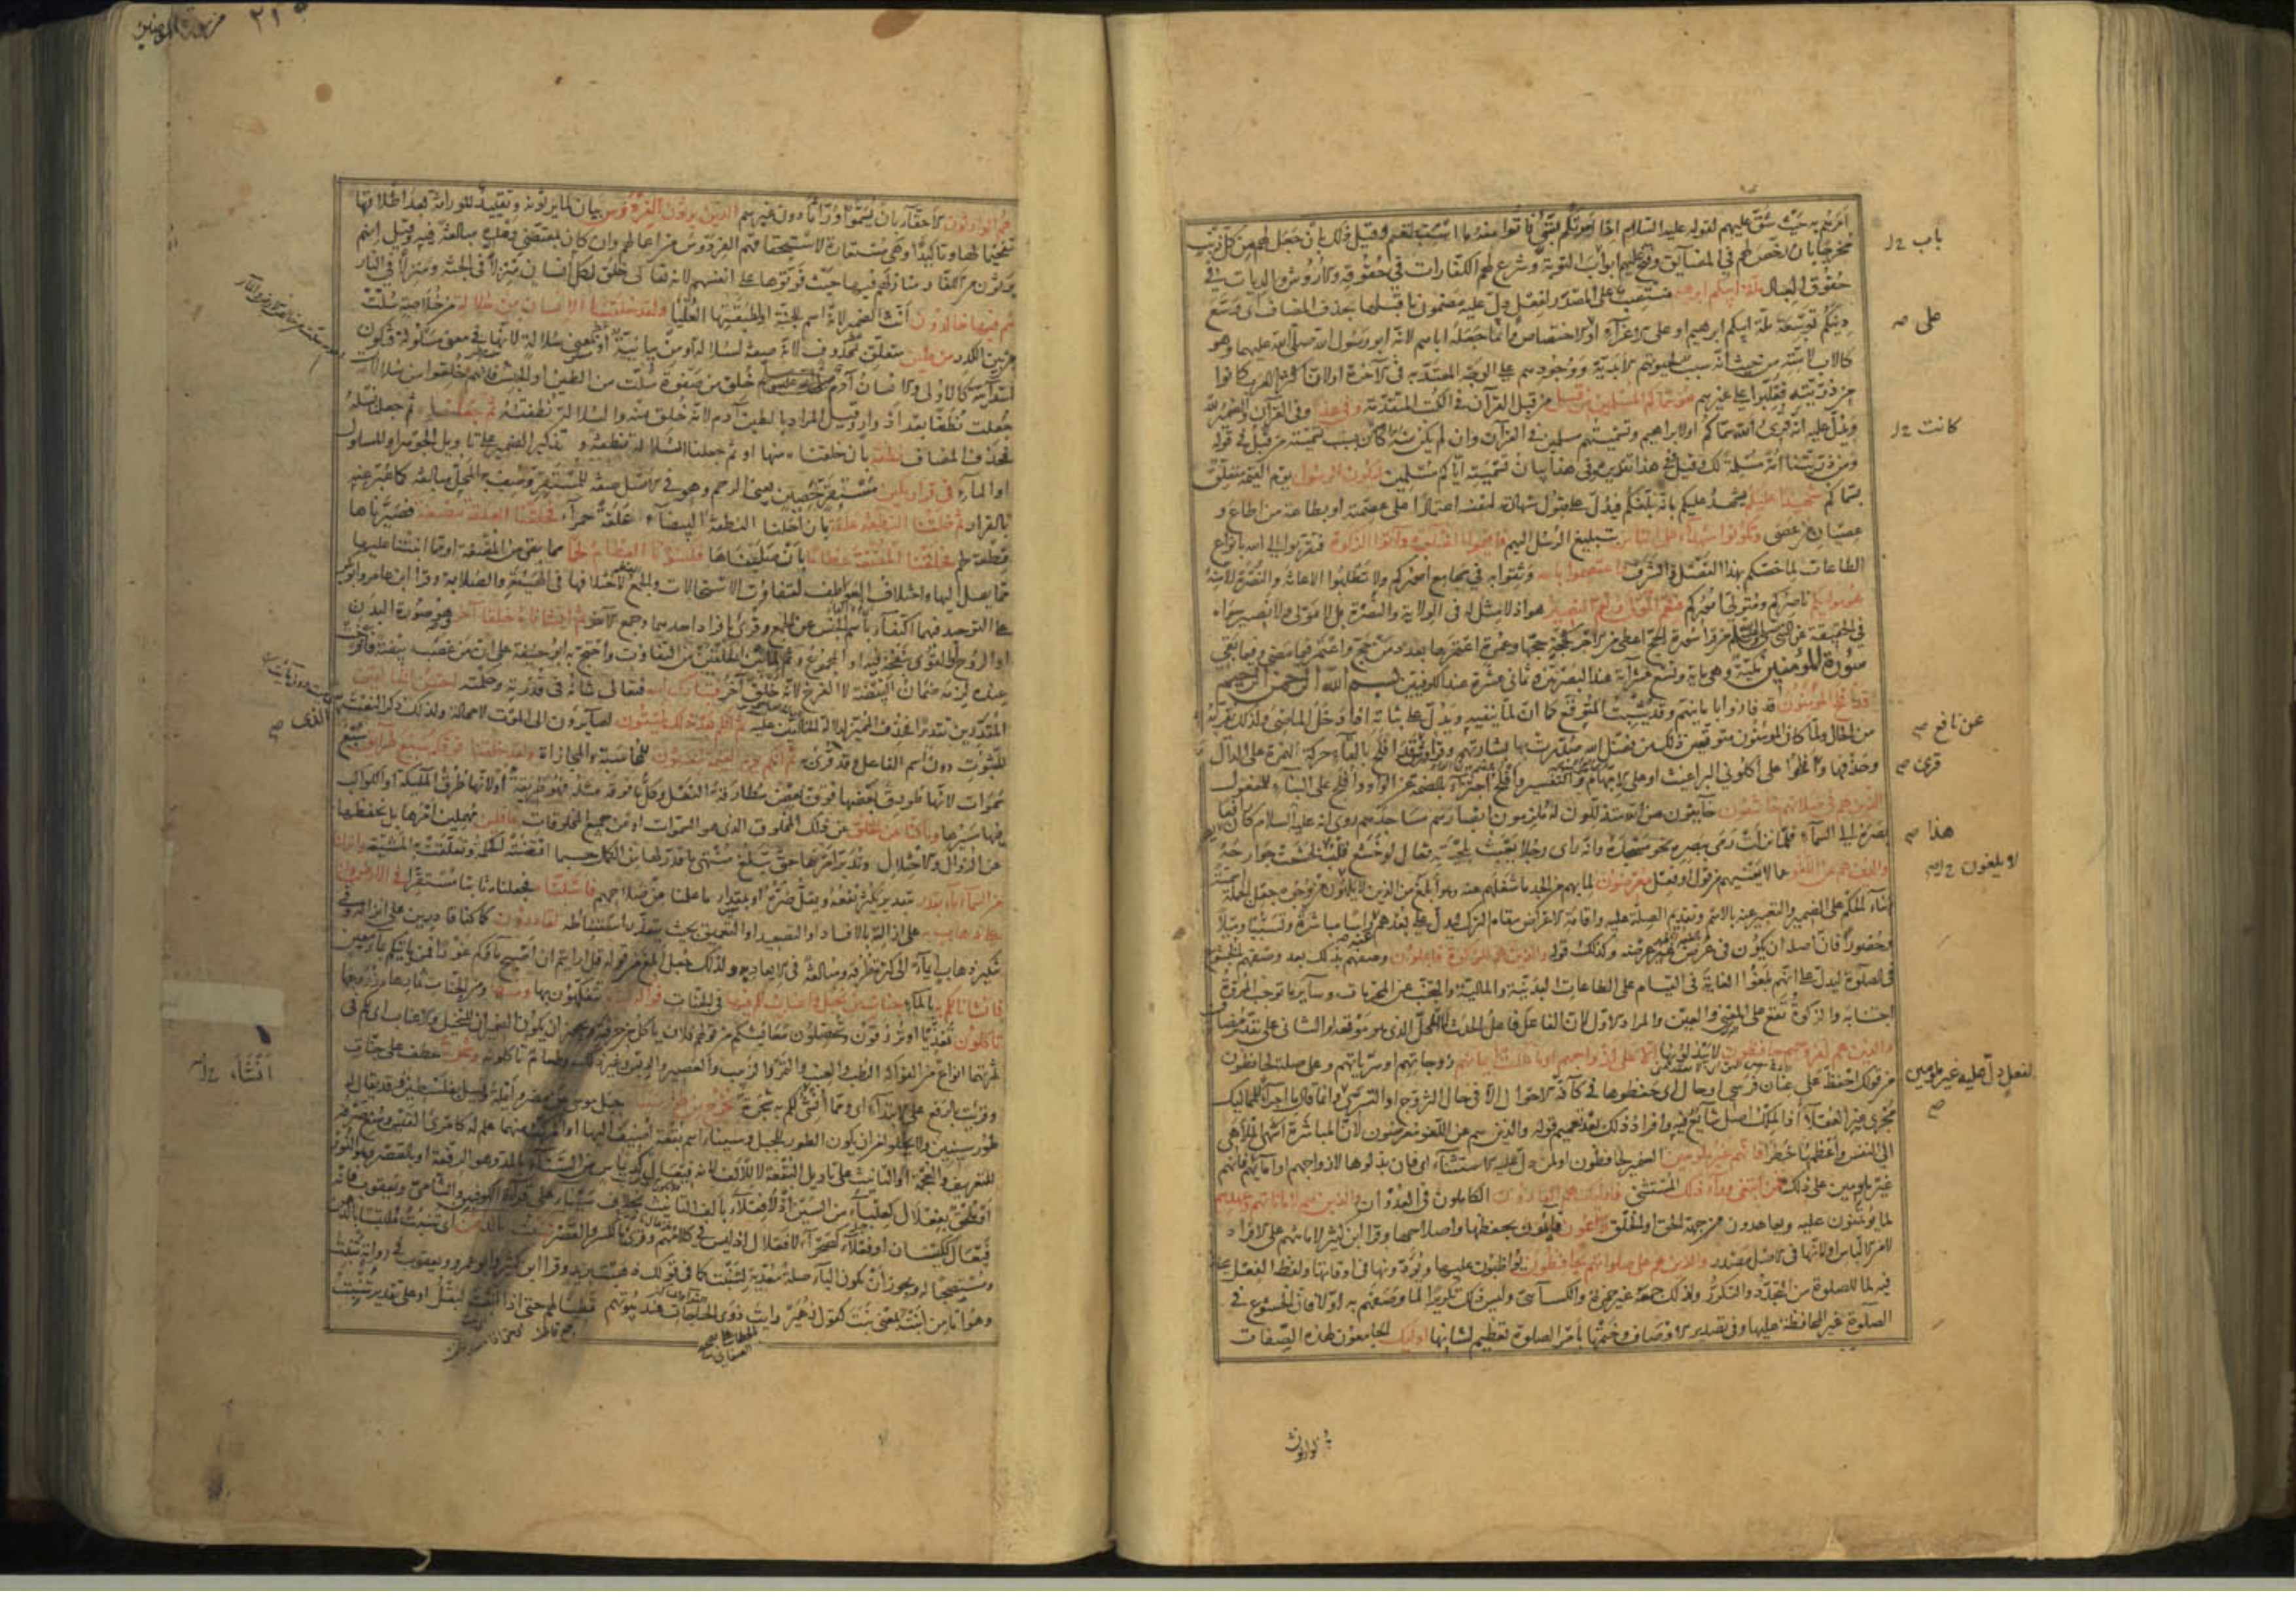 باب
امرتم به حيث شق عليهم لقوله عليه السلام اذا امرتكم بشئ فأتوا منه ما استطعتم وقيل ذلك بان جعل لهم من كل ذنب
مخرجا بان رخص لهم في المضايق وفتح عليهم ابواب التوبة وشرع لهم الكفارات في حقوقه والاروش والديات في
حقوق العباد ملة ابيكم ابرهيم منتصب على المصدر لفعل دل عليه مضمون ما قبلها بحذف المضاف اي وسع
على
دينكم توسعة ملة ابيكم ابرهيم او على الاغراء او الاختصاص وانما جعله اباهم لانه ابو رسول الله صلى الله عليهما وهو
كالاب لامته من حيث انه سبب لحيوتهم الابدية ووجودهم على الوجه المعتد به في الاخرة او لان اكثر العرب كانوا
من ذريته فغلبوا على غيرهم هو سماكم المسلمين من قبل من قبل القرآن في الكتب المتقدمة وفي هذا وفي القرآن والضمير لله
كانت
ويدل عليه انه قرئ الله سماكم او لابراهيم وتسميتهم بمسلمين في القرآن وان لم يكن منه كان بسبب تسميته من قبل في قوله
ومن ذريتنا امة مسلمة لك وقيل وفي هذا تقديره وفي هذا بيان تسميته اياكم مسلمين ليكون الرسول يوم القيمة متعلق
بسماكم شهيدا عليكم يشهد عليكم بانه بلغكم فيدل على قبول شهادته لنفسه اعتمادا على عصمته او بطاعة من اطاع و
عصيان من عصى وتكونوا شهداء على الناس بتبليغ الرسل اليهم فاقيموا الصلوة وآتوا الزكوة فتقربوا الى الله بانواع
الطاعات لما خصكم بهذا الفضل والشرف واعتصموا بالله وثقوا به في مجامع اموركم ولا تطلبوا الاعانة والنصرة الا منه
هو موليكم ناصركم ومتولي اموركم فنعم المولى ونعم النصير هو اذ لا مثل له في الولاية والنصرة بل لا مولى ولا نصير سواه
في الحقيقة عن النبي من قرأ سورة الحج اعطي من الاجر كحجة حجها وعمرة اعتمرها بعدد من حج واعتمر فيما مضى وفيما بقي
سورة المؤمنين مكية وهي مائة وتسع عشرة آية عند البصريين وثماني عشرة عند الكوفيين بسم الله الرحمن الرحيم
قد افلح المؤمنون قد فازوا بامانيهم وقد يثبت المتوقع كما ان لما ينفيه ويدل على ثباته اذا دخل الماضي ولذلك تقربه
عن نافع
من الحال ولما كان المؤمنون متوقعين ذلك من فضل الله صدرت بها بشارتهم وقرأ ورش قد افلح بالقاء حركة الهمزة على الدال
قرئ
وحذفها وافلحوا على اكلوني البراغيث او على الابهام والتفسير وافلح اجتزاء بالضمة عن الواو وافلح على البناء للمفعول
الذين هم في صلاتهم خاشعون خائفون من الله متذللون له ملزمون ابصارهم مساجدهم روي انه عليه السلام كان
هذا
بصره الى السماء فلما نزلت رمى ببصره نحو مسجده وانه رأى رجلا يعبث بلحيته فقال لو خشع قلب خشعت جوارحه
والذين هم عن اللغو عما لا يعنيهم من قول او فعل معرضون لما بهم من الجد ما شغلهم عنه وهو ابلغ من الذين لا يلهون من وجوه جعل الجملة اسمية
وبناء الحكم على الضمير والتعبير عنه بالاسم وتقديم الصلة عليه واقامة الاعراض مقام الترك ليدل على بعدهم عنه رأسا مباشرة وتسببا وميلا
وحضورا فان اصله ان يكون في عرض غير عرضه وكذلك قوله والذين هم للزكوة فاعلون وصفهم بذلك بعد وصفهم بالخشوع
في الصلوة ليدل على انهم بلغوا الغاية في القيام على الطاعات البدنية والمالية والتجنب عن المحرمات وسائر ما توجب المروة
اجتنابه والزكوة تقع على المعنى والعين والمراد الاول لان الفاعل فاعل الحدث لا المحل الذي هو موقعه او الثاني على تقدير مضاف
والذين هم لفروجهم حافظون لا يبذلونها الا على ازواجهم او ما ملكت ايمانهم زوجاتهم او سرياتهم وعلى صلة لحافظون
لفعل دل عليه غير ملومين
من قولك احفظ على عنان فرسي او حال اي حفظوها في كافة الاحوال الا في حال التزوج او التسري وانما قال ما اجراء للمماليك
مجرى غير العقلاء اذ الملك اصل شائع فيه وافراد ذلك بعد تعميم قوله والذين هم عن اللغو معرضون لان المباشرة اشهى الملاهي
الى النفس واعظمها خطرا فانهم غير ملومين الضمير لحافظون او لمن دل عليه الاستثناء اي فان بذلوها لازواجهم او امائهم فانهم
غير ملومين على ذلك فمن ابتغى وراء ذلك المستثنى فاولئك هم العادون الكاملون في العدوان والذين هم لاماناتهم وعهدهم
لما يؤتمنون عليه ويعاهدون من جهة الحق او الخلق راعون قائمون بحفظها واصلاحها وقرأ ابن كثير لامانتهم على الافراد
لامن الالباس او لانها في الاصل مصدر والذين هم على صلواتهم يحافظون يواظبون عليها ويؤدونها في اوقاتها ولفظ الفعل
فيه لما للصلوة من التجدد والتكرر ولذلك جمعه غير حمزة والكسائي وليس ذلك تكريرا لما وصفهم به اولا فان الخشوع في
الصلوة غير المحافظة عليها وفي تصدير الاوصاف وختمها بامر الصلوة تعظيم لشأنها اولئك الجامعون لهذه الصفات
٢١٥
هم الوارثون الاحقاء بان يسموا وراثا دون غيرهم الذين يرثون الفردوس بيان لما يرثونه وتقييد للوراثة بعد اطلاقها
تفخيما لها وتاكيدا وهي مستعارة لاستحقاقهم الفردوس من اعمالهم وان كان بمقتضى وعده مبالغة فيه وقيل انهم
يرثون من الكفار منازلهم فيها حيث فوتوها على انفسهم لانه تعالى خلق لكل انسان منزلا في الجنة ومنزلا في النار
هم فيها خالدون انث الضمير لانه اسم للجنة او لطبقتها العليا ولقد خلقنا الانسان من سلالة من خلاصة سلت
من بين الكدر من طين متعلق بمحذوف لانه صفة لسلالة او من بيانية او بمعنى سلالة لانها في معنى مسلولة فتكون
ابتدائية كالاولى والانسان آدم خلق من صفوة سلت من الطين او الجنس فانهم خلقوا من سلالات
جعلت نطفا بعد ادوار وقيل المراد بالطين آدم لانه خلق منه والسلالة نطفته ثم جعلناه ثم جعلنا نسله
فحذف المضاف نطفة بان خلقناه منها او ثم جعلنا السلالة نطفة وتذكير الضمير على تأويل الجوهر او المسلول
او الماء في قرار مكين مستقر حصين يعني الرحم وهو في الاصل صفة للمستقر وصف به المحل مبالغة كما عبر عنه
بالقرار ثم خلقنا النطفة علقة بان احلنا النطفة البيضاء علقة حمراء فخلقنا العلقة مضغة فصيرناها
قطعة لحم فخلقنا المضغة عظاما بان صلبناها فكسونا العظام لحما مما بقي من المضغة او مما انبتنا عليها
مما يصل اليها واختلاف العواطف لتفاوت الاستحالات والجمع لاختلافها في الهيئة والصلابة وقرأ ابن عامر وابو بكر
على التوحيد فيهما اكتفاء باسم الجنس عن الجمع وقرئ بافراد احدهما وجمع الاخر ثم انشأناه خلقا آخر وهو صورة البدن
او الروح او القوى بنفخه فيه او المجموع وثم لما بين الخلقين من التفاوت واحتج به ابو حنيفة على ان من غصب بيضة فافرخت
عنده لزمه ضمان البيضة لا الفرخ لانه خلق آخر فتبارك الله فتعالى شانه في قدرته وحكمته احسن الخالقين
المقدرين تقديرا فحذف المميز لدلالة الخالقين عليه ثم انكم بعد ذلك لميتون لصائرون الى الموت لا محالة ولذلك ذكر النعت
الذي
للثبوت دون اسم الفاعل وقد قرئ به ثم انكم يوم القيمة تبعثون للمحاسبة والمجازاة ولقد خلقنا فوقكم سبع طرائق سبع
سموات لانها طورق بعضها فوق بعض مطارقة النعل وكل ما فوقه مثله فهو طريقة او لانها طرق الملئكة او الكواكب
فيها مسيرها وما كنا عن الخلق عن ذلك المخلوق الذي هو السموات او عن جميع المخلوقات غافلين مهملين امرها بل نحفظها
عن الزوال والاختلال وندبر امرها حتى تبلغ منتهى ما قدر لها من الكمال حسبما اقتضته الحكمة وتعلقت به المشية وانزلنا
من السماء ماء بقدر بتقدير يكثر نفعه ويقل ضره او بمقدار ما علمنا من صلاحهم فاسكناه فجعلناه ثابتا مستقرا في الارض وانا
على ذهاب به على ازالته بالافساد او التصعيد او التعميق بحيث يتعذر استنباطه لقادرون كما كنا قادرين على انزاله وفي
تنكير ذهاب ايماء الى كثرة طرقه ومبالغة في الابعاد به ولذلك جعل ابلغ من قوله قل ارايتم ان اصبح ماؤكم غورا فمن ياتيكم بماء معين
فانشأنا لكم به بالماء جنات من نخيل واعناب لكم فيها في الجنات فواكه كثيرة تتفكهون بها ومنها ومن الجنات ثمارها وزروعها
تاكلون تغذيا او ترزقون وتحصلون معايشكم من قولهم فلان ياكل من حرفته ويجوز ان يكون الضميران للنخيل والاعناب اي لكم في
انشاء
ثمرتهما انواع من الفواكه الرطب والعنب والتمر والزبيب والعصير والدبس وغير ذلك وطعام تاكلونه وشجرة عطف على جنات
وقرئت بالرفع على الابتداء اي ومما انشئ لكم به شجرة تخرج من طور سيناء جبل موسى بين مصر وايلة وقيل بفلسطين وقد يقال له
طور سينين ولا يخلو من ان يكون الطور للجبل وسيناء اسم بقعة اضيف اليها او المركب منهما علم له كامرئ القيس ومنع صرفه
للتعريف والعجمة او التانيث على تاويل البقعة لا للالف لانه فيعال كديماس من السناء بالمد وهو الرفعة او بالقصر وهو النور
او ملحق بفعلال كعلباء من السين اذ لا فعلاء بالف التانيث بخلاف سيناء على قراءة الكوفيين والشامي ويعقوب فانه
فيعال ككيسان او فعلاء كصحراء لا فعلال اذ ليس في كلامهم وقرئ بالكسر والقصر تنبت بالدهن اي تنبت ملتبسا بالدهن
ومستصحبا له ويجوز ان تكون الباء صلة معدية لتنبت كما في قولك ذهبت بزيد وقرأ ابن كثير وابو عمرو ويعقوب في رواية تنبت
وهو اما من انبت بمعنى نبت كقول زهير رأيت ذوي الحاجات عند بيوتهم قطينا لهم حتى اذا انبت البقل او على تقدير تنبت